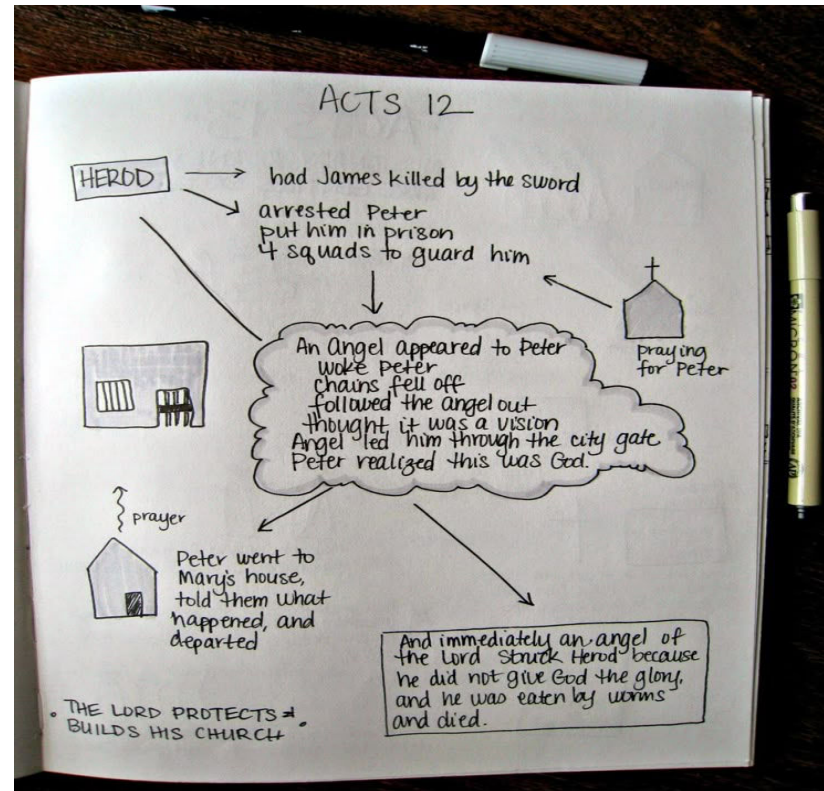 ACTS 12
HEROD
had James killed by the sword
arrested Peter
put him in prison
4 squads to guard him
praying
for Peter
An Angel appeared to Peter
woke Peter
chains fell off
followed the angel out
thought it was a vision
Angel led him through the city gate
Peter realized this was God.
prayer
Peter went to
Mary's house,
told them what
happened, and
departed
And immediately an angel of
the Lord Struck Herod because
he did not give God the glory,
and he was eaten by worms
and died.
. THE LORD PROTECTS +
BUILDS HIS CHURCH .
MICRON